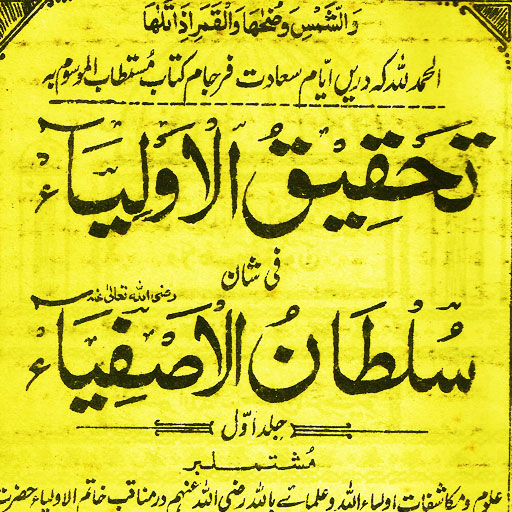 وَالشَّمْسِ وَضُحٰهَا وَالْقَمَرِ اِذَا تَلٰهَا
الحمد للہ کہ دریں ایّام سعادت فرجام کتاب مُستطاب الموسوم بہ
تَحَقِیقُ الْاَوْلِیَآء
فی شان
رضی اللہ تعالیٰ عنہ
سُلْطَانُ الْاَصْفِیَآء
جلد اوّل
مُشتملبر
علوم و مکاشفات اولیاء اللہ و علمائے باللہ رضی اللہ عنہم در مناقب خاتم الاولیاء حضرت